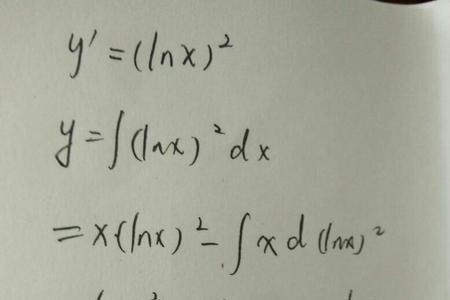 y' = (lnx)²
y = ∫(lnx)²dx
= x(lnx)² - ∫x d(lnx)²